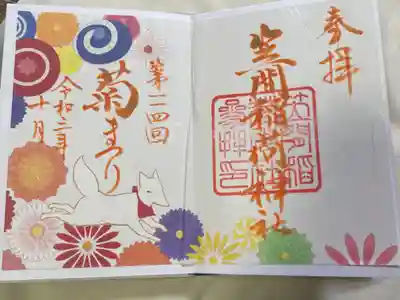 参拝
笠間稲荷神社
第一一四回
菊まつり
令和三年
十月